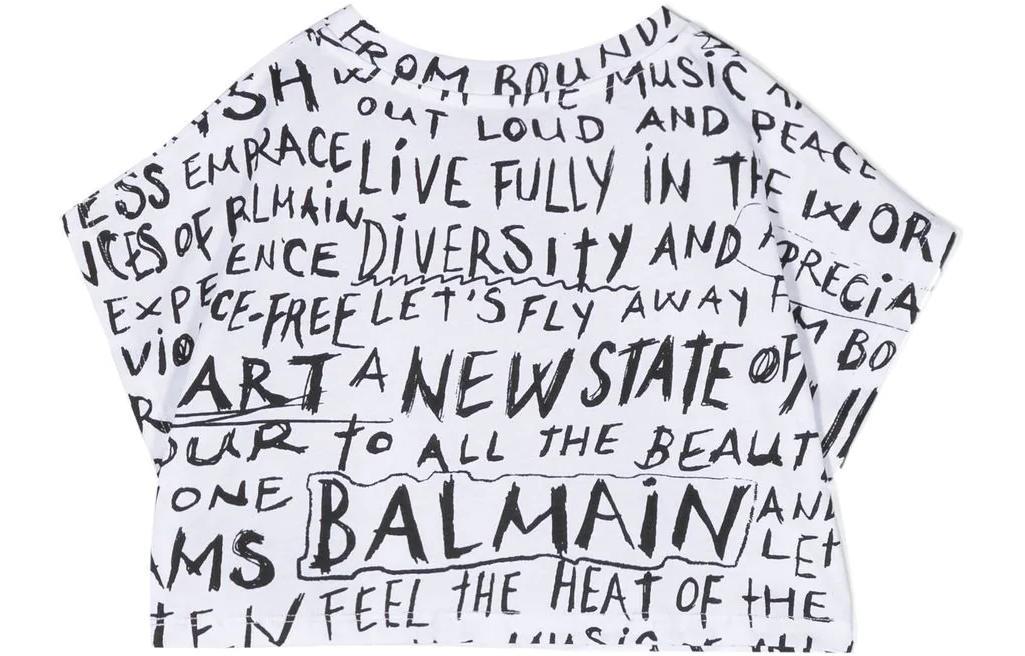 FROM BOUND
SH WE ARE MUSIC A
OUT LOUD AND PEACE
ESS EMBRACE LIVE FULLY IN THE WOR
NCES OF BALMAIN
ENCE DIVERSITY AND APPRECIA
EXPE CE-FREE LET'S FLY AWAY F M BO
VIO ART A NEW STATE OF
R OUR TO ALL THE BEAUT
ONE BALMAIN AND
AMS LET
TEN FEEL THE HEAT OF THE
MUSIC